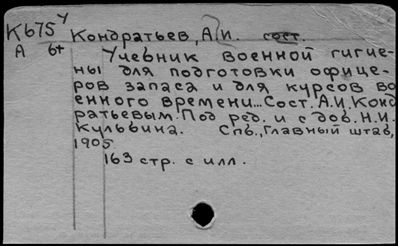 К675у Кондратьев, А.И. сост.
А 6+ Учебник военной гигие-
ны для подготовки офице-
ров запаса и для курсов во
енного времени...Сост. А.И. Конд
ратьевым. Под ред. и с доб. Н.И.
Кульбина. Спб., Главный штаб,
1905
163 стр. с илл.